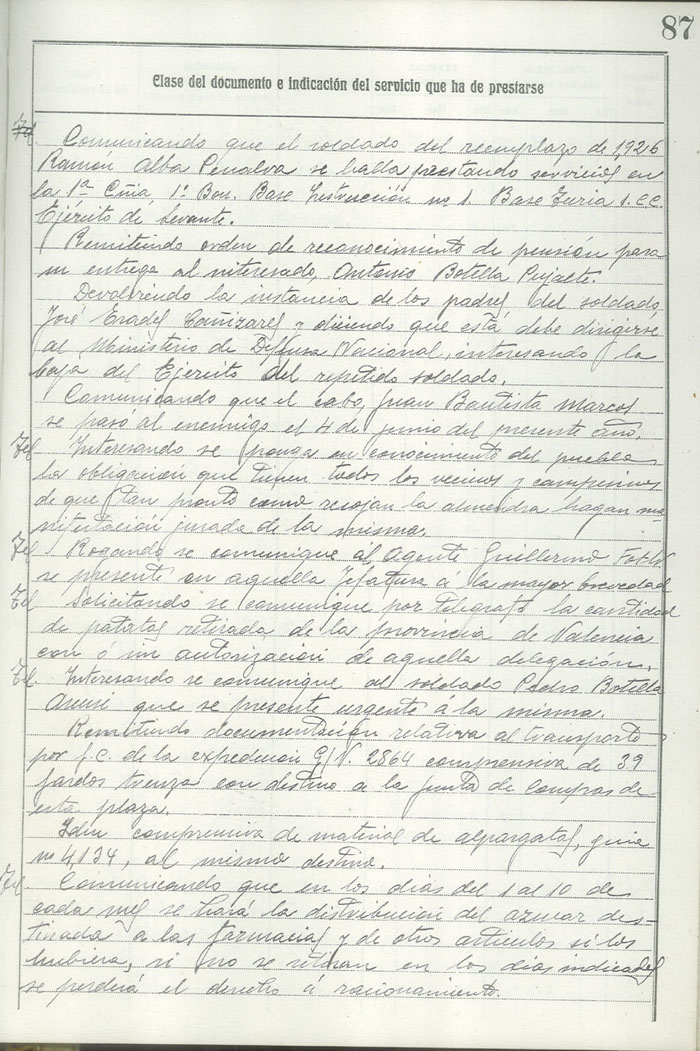 87
Clase del documento e indicación del servicio que ha de prestarse
Comunicando que el soldado del reemplazo de 1,926
Ramón Alba Penalva se halla prestando servicios en
la 1ª Cñia 1º Bon. Base Instrucción nº 1. Base Turia 1. C.C.
Ejército de Levante.
Remitiendo orden de reconocimiento de pensión para
su entrega al interesado, Antonio Botella Pujalte.
Devolviendo la instancia de los padres del soldado,
José Erades Cañizares y diciendo que esta debe dirigirse
al Ministerio de Defensa Nacional, interesando la
baja del Ejército del repetido soldado.
Comunicando que el cabo, Juan Bautista Marcos
se pasó al enemigo el 4 de junio del presente año.
Tel Interesando se ponga en conocimiento del pueblo
la obligación que tienen todos los vecinos y campesinos
de que tan pronto como recojan la almendra hagan ma-
nifestación jurada de la misma.
Tel Rogando se comunique al Agente Guillermo
se presente en aquella Jefatura á la mayor brevedad
Tel Solicitando se comunique por telégrafo la cantidad
de patatas retirada de la provincia de Valencia
con ó sin autorización de aquella delegación.
Tel. Interesando se comunique al soldado Pedro Botella
Asensi que se presente urgente á la misma.
Remitiendo documentación relativa al transporte
por f.c. de la expedición G/V. 2864 comprensiva de 39
fardos trenza con destino a la Junta de Compras de
esta plaza.
Idm comprensiva de material de alpargatas, guia
nº 4,134, al mismo destino.
Tel. Comunicando que en los dias del 1 al 10 de
cada mes se hará la distribución del azucar des-
tinada a las farmacias y de otros articulos si los
hubiera, si no se retiran en los dias indicados
se perderá el derecho á racionamiento.